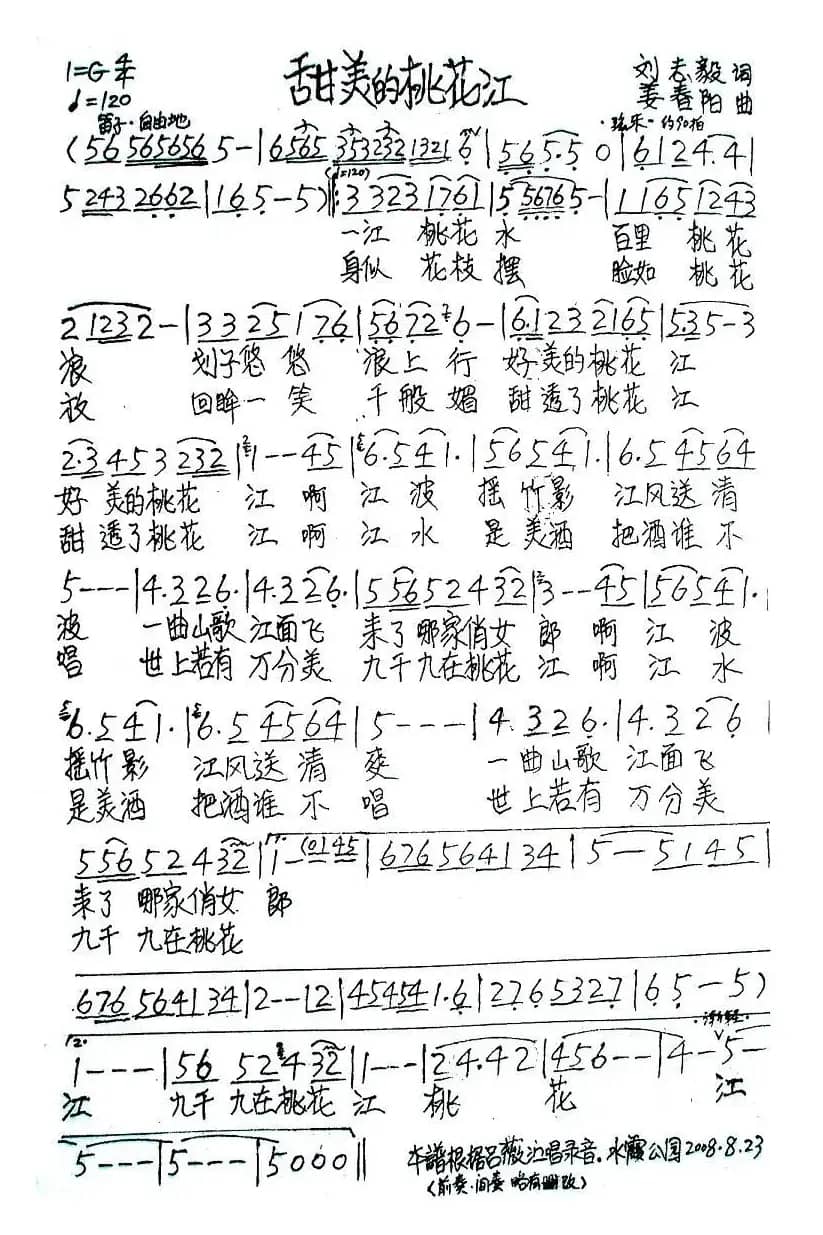 1=G 4/4
♩=120
甜美的桃花江
刘志毅 词
姜春阳 曲
笛子·自由地
·弦乐· 约90拍
(56 565656 5-|6565 353232 1321 6|565.5 0|6124.4|
5243 2662|165-5)‖:(♩=120) 3323 1761|5 5676 5-|1165 1243
一江 桃花 水 百里 桃花
身似 花枝 摆 脸如 桃花
2 123 2-|3325 176|5672 6-|6.123 2165|5.35-3
浪 划子悠 悠 浪上行 好美的桃花 江
放 回眸一 笑 千般媚 甜透了桃花 江
2.3 453 232|1--45|6.541.|56541.|6.5 4564
好 美的桃花 江 啊 江 波 摇 竹影 江风送 清
甜 透了桃花 江 啊 江 水 是 美酒 把酒谁 不
5---|4.326.|4.326.|556524 32|3--45|56541.
波 一曲山歌 江面飞 来了 哪家俏女 郎 啊 江 波
唱 世上若有 万分美 九千 九在桃花 江 啊 江 水
6.541.|6.5 4564|5---|4.326.|4.326|
摇竹影 江风送 清 爽 一曲山歌 江面飞
是美酒 把酒谁 不 唱 世上若有 万分美
556524 32|1. 1-(0145|676564134|5--5145|
来了 哪家俏女 郎
九千 九在桃花
676564134|2--12|454541.6|27653327|65-5)
12.
·渐轻·
1---|56 524 32|1---|24.42|456--|4-5-
江 九千 九在桃花 江 桃 花 江
5---|5---|5000‖
本譜根据吕薇演唱录音. 水霞公园2008.8.23
(前奏·间奏 略有删改)